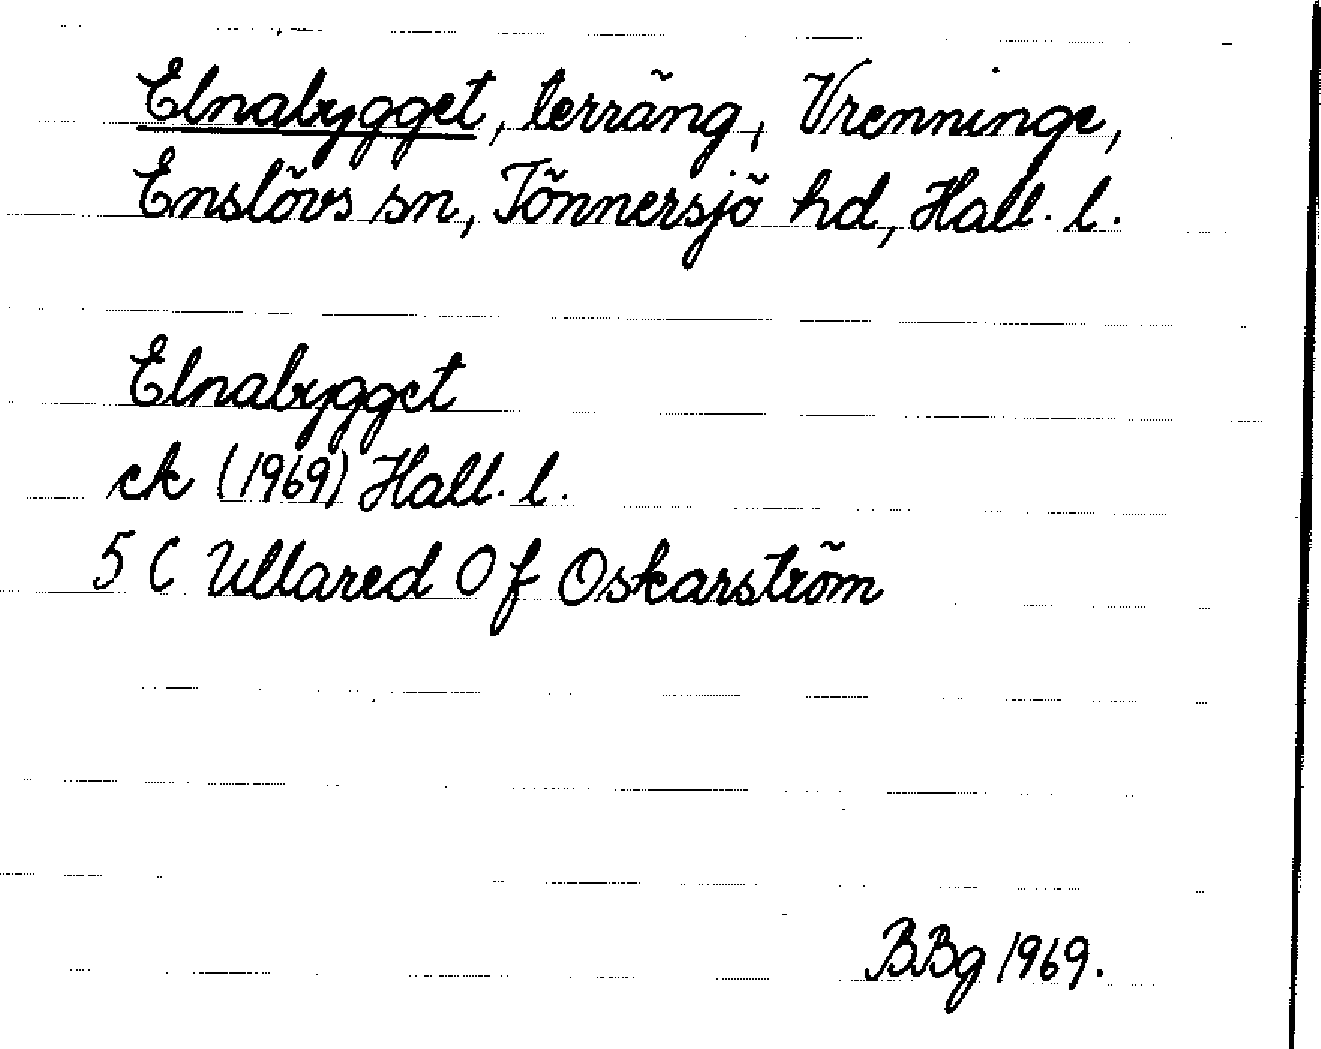 Elnabygget, terräng, Vrenninge,
Enslövs sn, Tönnersjö hd, Hall. l.
Elnabygget
ek (1969) Hall. l.
5 C Ullared 0 f Oskarström
BBg 1969.